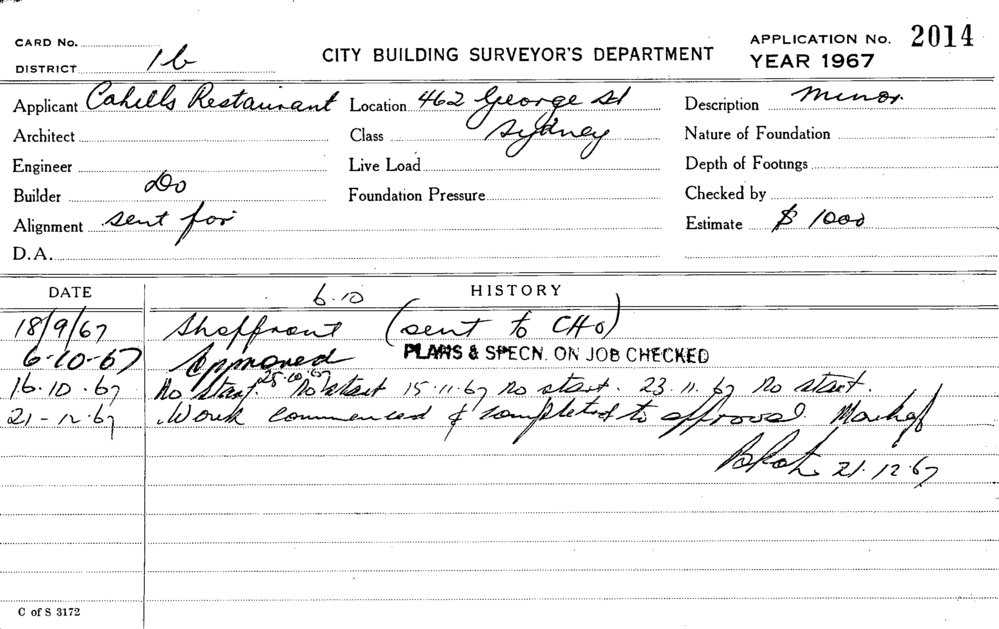 CARD No.
DISTRICT 1b
CITY BUILDING SURVEYOR'S DEPARTMENT
APPLICATION No. 2014
YEAR 1967
Applicant Cahills Restaurant Location 462 George St Description Minor.
Architect Class Sydney Nature of Foundation
Engineer Live Load Depth of Footings
Builder Do Foundation Pressure Checked by
Alignment sent for Estimate $ 1000
D.A.
DATE HISTORY
6.10
18/9/67 Shopfront (sent to CHO)
6-10-67 Approved PLANS & SPECN. ON JOB CHECKED
16.10.67 No start. 25.10.67 No start 15.11.67 No start. 23.11.67 No start.
21-12-67 Work commenced & completed to approval
21.12.67
C of S 3172